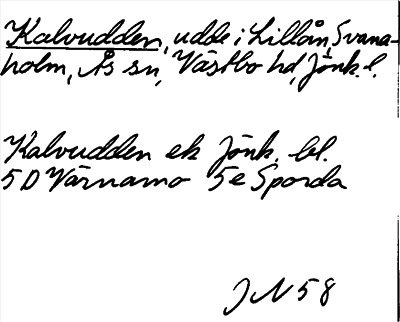 Kalvudden, udde i Lillån, Svana-
holm, Ås sn, Västbo hd, Jönk. l.
Kalvudden ek Jönk. bl.
5D Värnamo 5e Sporda
J N 58